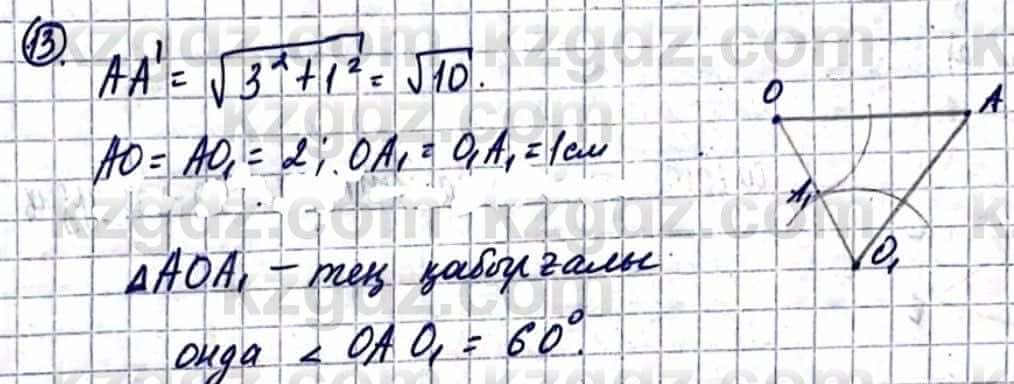 13.
AA' = √3² + 1² = √10.
AO = AO₁ = 2; OA₁ = O₁A₁ = 1 см
△AOA₁ – тең қабырғалы
онда ∠ OAO₁ = 60°.
O A
A₁
O₁
kzgdz.com